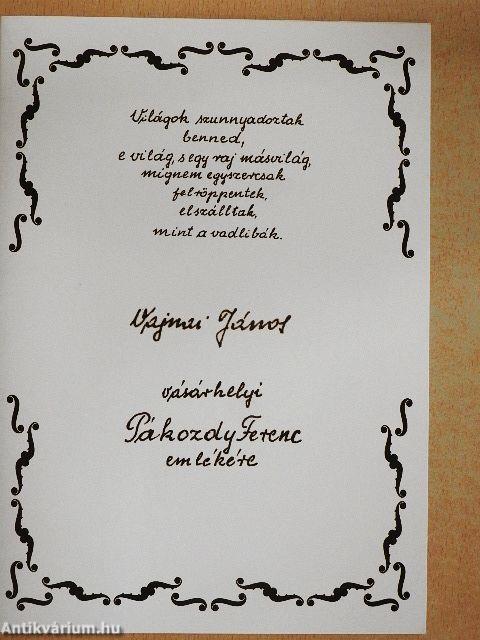 Világok szunnyadoztak
benned,
e világ, s egy raj másvilág,
mignem egyszercsak
felröppentek,
elszálltak,
mint a vadlibák.
Vajnai János
vásárhelyi
Pákozdy Ferenc
emlékére
Antikvárium.hu